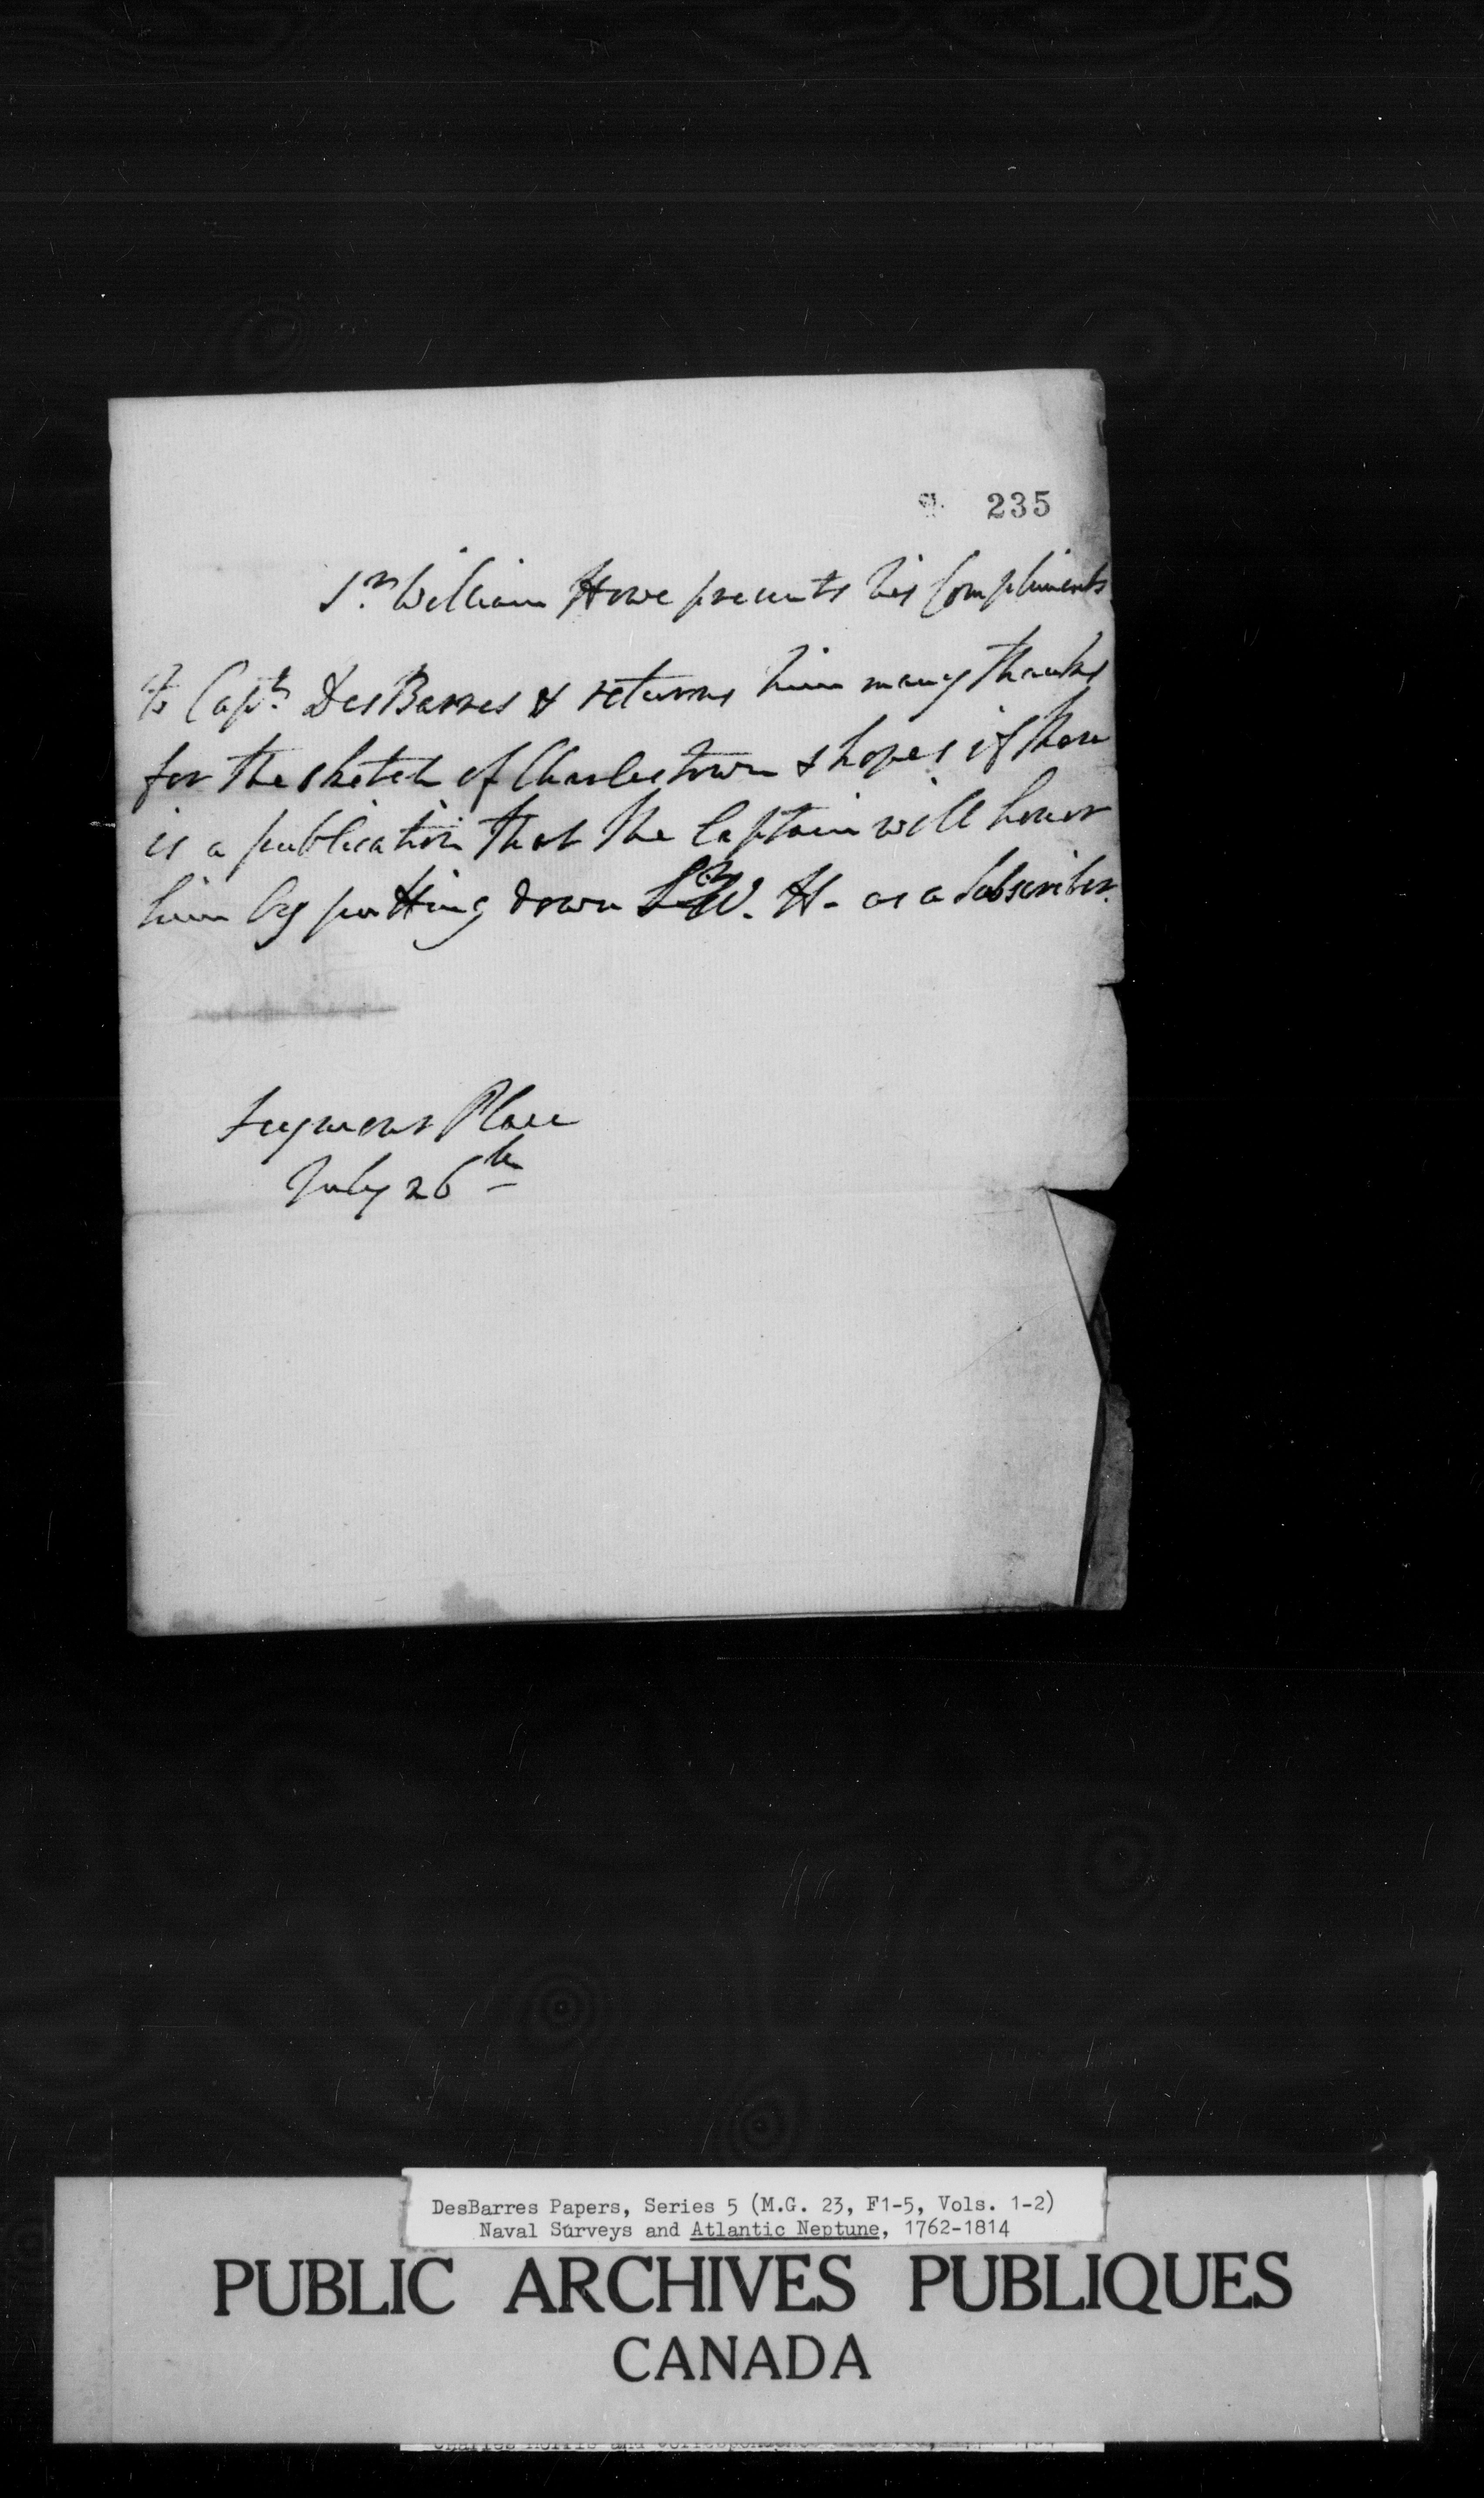 235
Sr. William Howe presents his Compliments
to Capt. DesBarres & returns him many thanks
for the sketch of Charlestown & hopes if there
is a publication that the Captain will honor
him by putting down Sr W. H- as a Subscriber.
Seymour Place
July 26th
DesBarres Papers, Series 5 (M.G. 23, F1-5, Vols. 1-2)
Naval Surveys and Atlantic Neptune, 1762-1814
PUBLIC ARCHIVES PUBLIQUES
CANADA